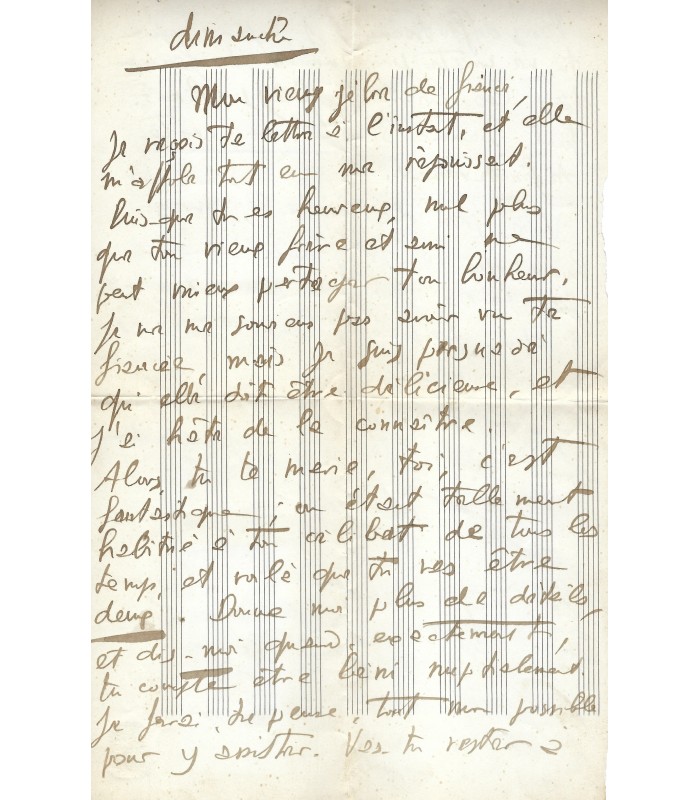 dimanche
Mon vieux de fiancé
Je reçois ta lettre à l'instant, et elle
m'affole tout en me réjouissant.
Puis-que tu es heureux, nul plus
que ton vieux frère et ami ne
peut mieux partager ton bonheur.
Je ne me souviens pas avoir vu ta
fiancée, mais je suis persuadé
qu'elle doit être délicieuse, et
j'ai hâte de la connaître.
Alors, tu te marie, toi, c'est
fantastique, on était tellement
habitué à ton célibat de tous les
temps, et voilà que tu vas être
deux. Donne moi plus de détails,
et dis-moi quand, exactement,
tu compte être béni nuptialement.
Je ferai, je pense, tout mon possible
pour y assister. Vas tu rester à